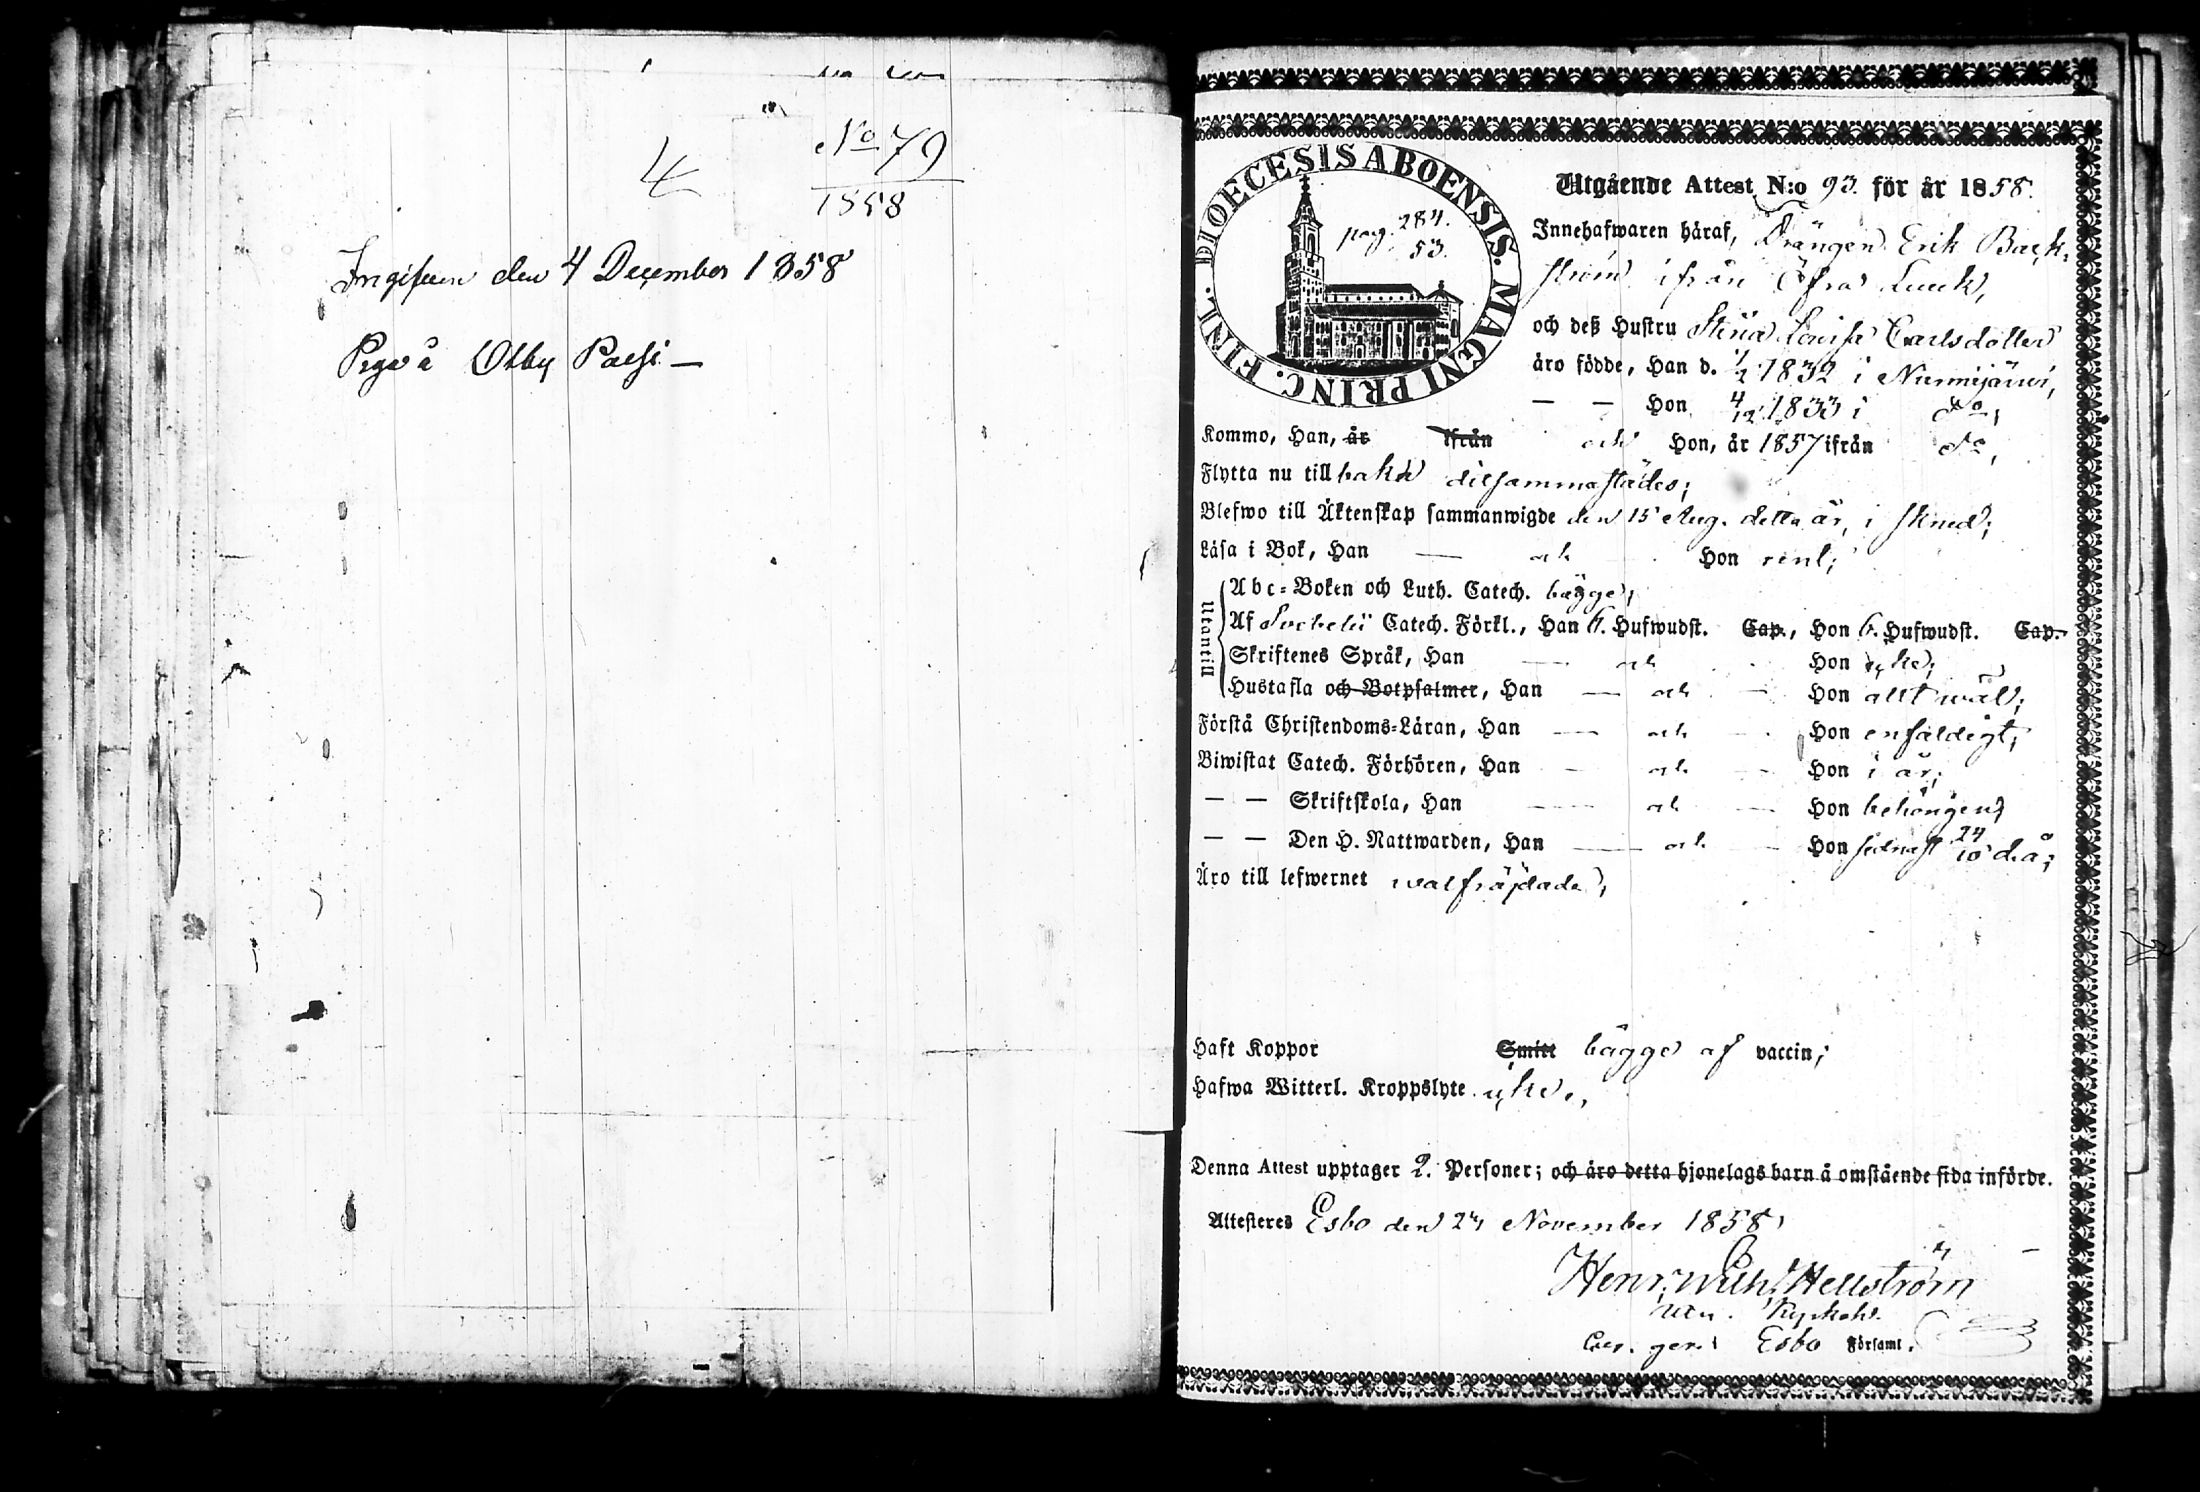 4
No 79
1858
Ingifven den 4 December 1858
Paesi —
DIOECESIS ABOENSIS. MAGNI PRINC. FINL.
pag. 284.
53.
Utgående Attest N:o 93. för år 1858.
Innehafwaren häraf, Drängen Erik Back-
ström ifrån Öfra Luuk,
och deß Hustru Stina Lovisa Carlsdotter
äro födde, Han d. 1/2 1832 i Nurmijärvi,
— — Hon 4/12 1833 i do,
Kommo, Han, år ifrån och Hon, år 1857 ifrån do,
Flytta nu tillbaka ditsammastädes;
Blefwo till Äktenskap sammanwigde den 15 Aug. detta år,
Läsa i Bok, Han — och Hon rent;
Utantill
Abc-Boken och Luth. Catech. bägge;
Af Svebelii Catech. Förkl., Han 6. Hufwudst. Cap., Hon 6. Hufwudst. Cap.
Skriftenes Språk, Han — och — Hon icke;
Hustafla och Botpsalmer, Han — och — Hon allt wäl;
Förstå Christendoms-Läran, Han — och — Hon enfaldigt;
Biwistat Catech. Förhören, Han — och — Hon i år;
— — Skriftskola, Han — och — Hon behörigen;
— — Den H. Nattwarden, Han — och — Hon sednast 24/10 d.å;
Äro till lefwernet wälfräjdade;
Haft Koppor Smitt bägge af vaccin;
Hafwa Witterl. Kroppslyte icke.,
Denna Attest upptager 2. Personer; och äro detta hjonelags barn å omstående sida införde.
Attesteras Esbo den 24 November 1858,
Henr. Wilh. Hellström
Esbo Församl.